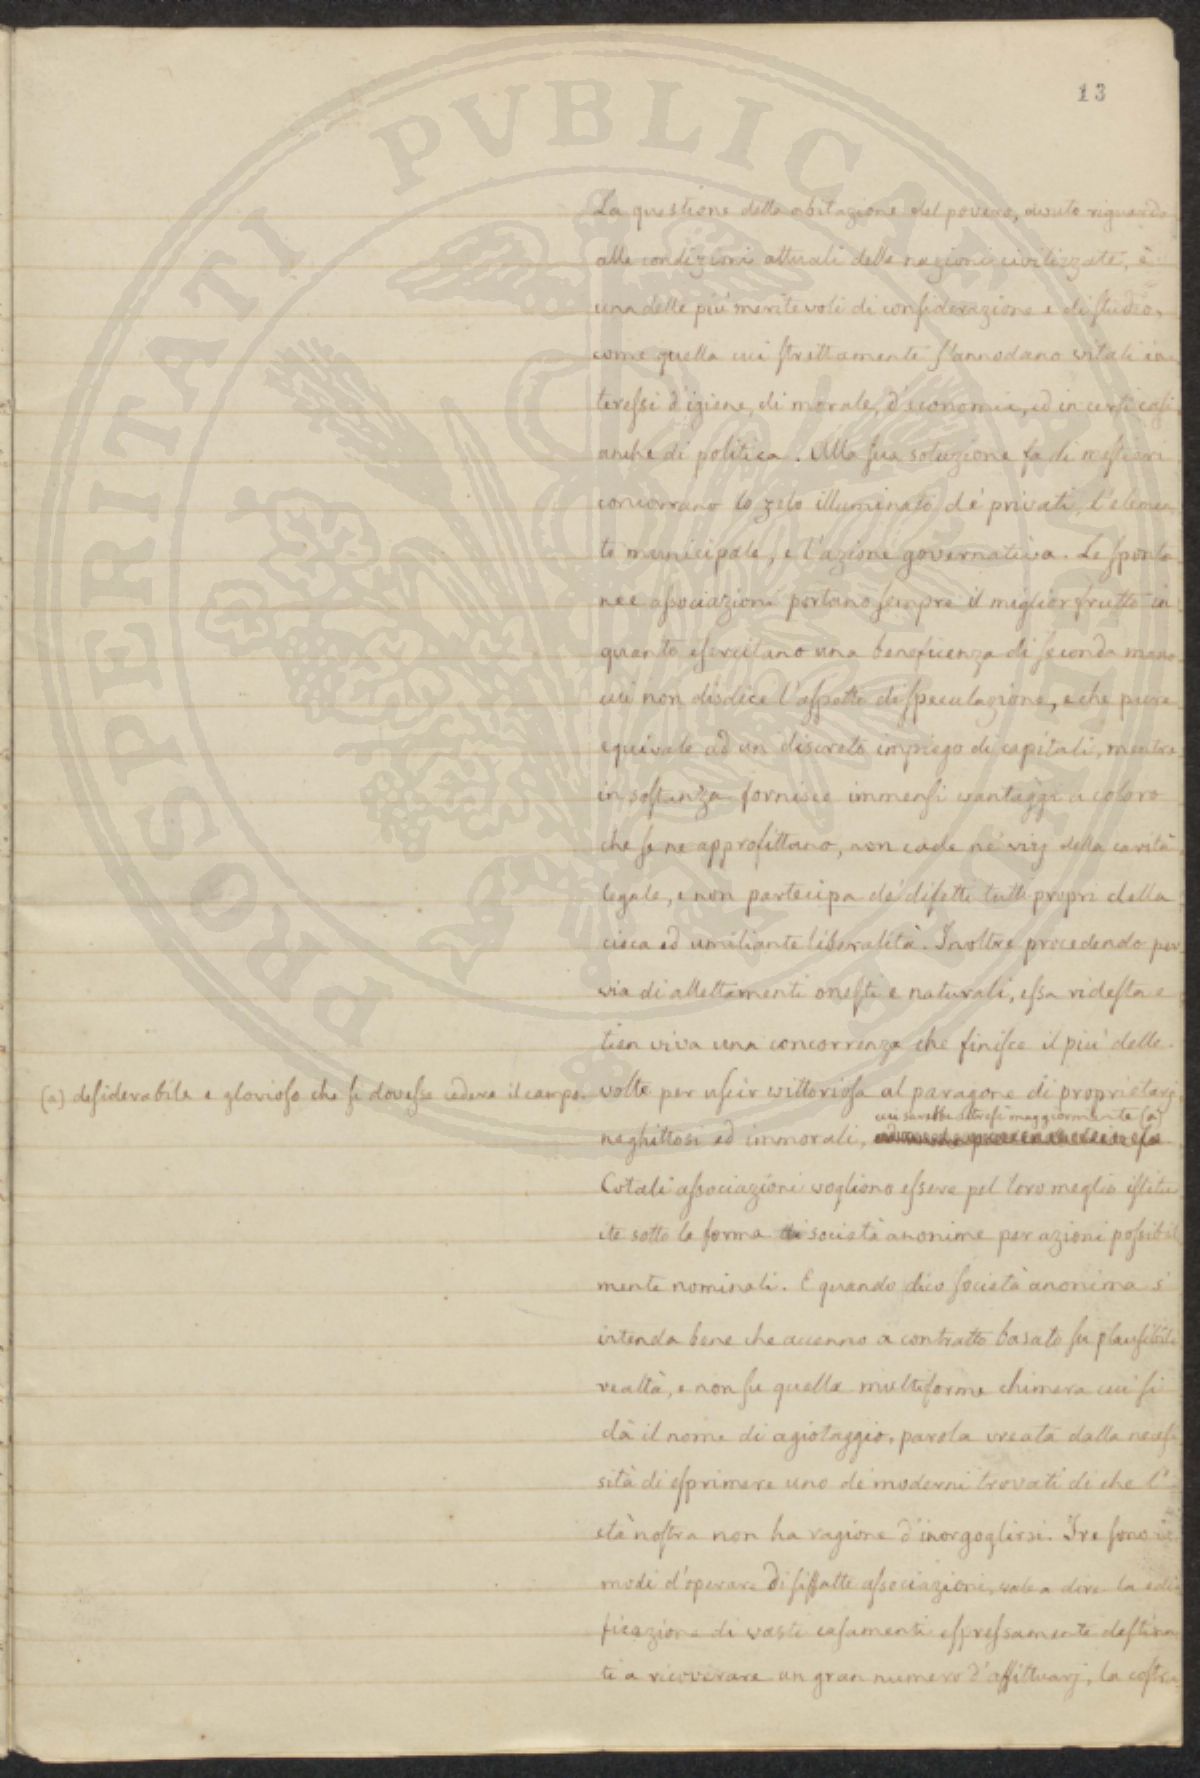 13
La questione delle abitazione del povero, avuto riguardo
alle condizioni attuali delle nazioni civilizzate, è
una delle più meritevoli di considerazione e di studio,
come quella cui strettamente s'annodano vitali in
teressi d'igiene, di morale, d'economia, ed in certi casi
anche di politica. Alla sua soluzione fa di mestieri
concorrano lo zelo illuminato de' privati, l'elemen
to municipale, e l'azione governativa. Le sponta
nee associazioni portano sempre il miglior frutto in
quanto esercitano una beneficenza di seconda mano
cui non disdice l'aspetto di speculazione, e che pure
equivale ad un discreto impiego di capitali, mentre
in sostanza fornisce immensi vantaggi a coloro
che se ne approfittano, non cade ne' vizj della carità
legale, e non partecipa de' difetti tutti propri della
cieca ed umiliante liberalità. Inoltre procedendo per
via di allettamenti onesti e naturali, essa ridesta e
tien viva una concorrenza che finisce il più delle
volte per uscir vittoriosa al paragone di proprietarj
cui sarebbe altresì maggiormente (a)
neghittosi ed immorali,
(a) desiderabile e glorioso che si dovesse cedere il campo.
Cotali associazioni vogliono essere pel loro meglio istitu
ite sotto la forma di società anonime per azioni possibil
mente nominali. E quando dico società anonima s'
intenda bene che accenno a contratto basato su plausibile
realtà, e non su quella multiforme chimera cui si
dà il nome di agiotaggio, parola creata dalla neces
sità di esprimere uno de' moderni trovati di che l'
età nostra non ha ragione d'inorgoglirsi. Tre sono i
modi d'operare di siffatte associazioni, vale a dire la edi
ficazione di vasti casamenti espressamente destina
ti a ricoverare un gran numero d'affittuarj, la costru
PROSPERITATI PVBLICAE